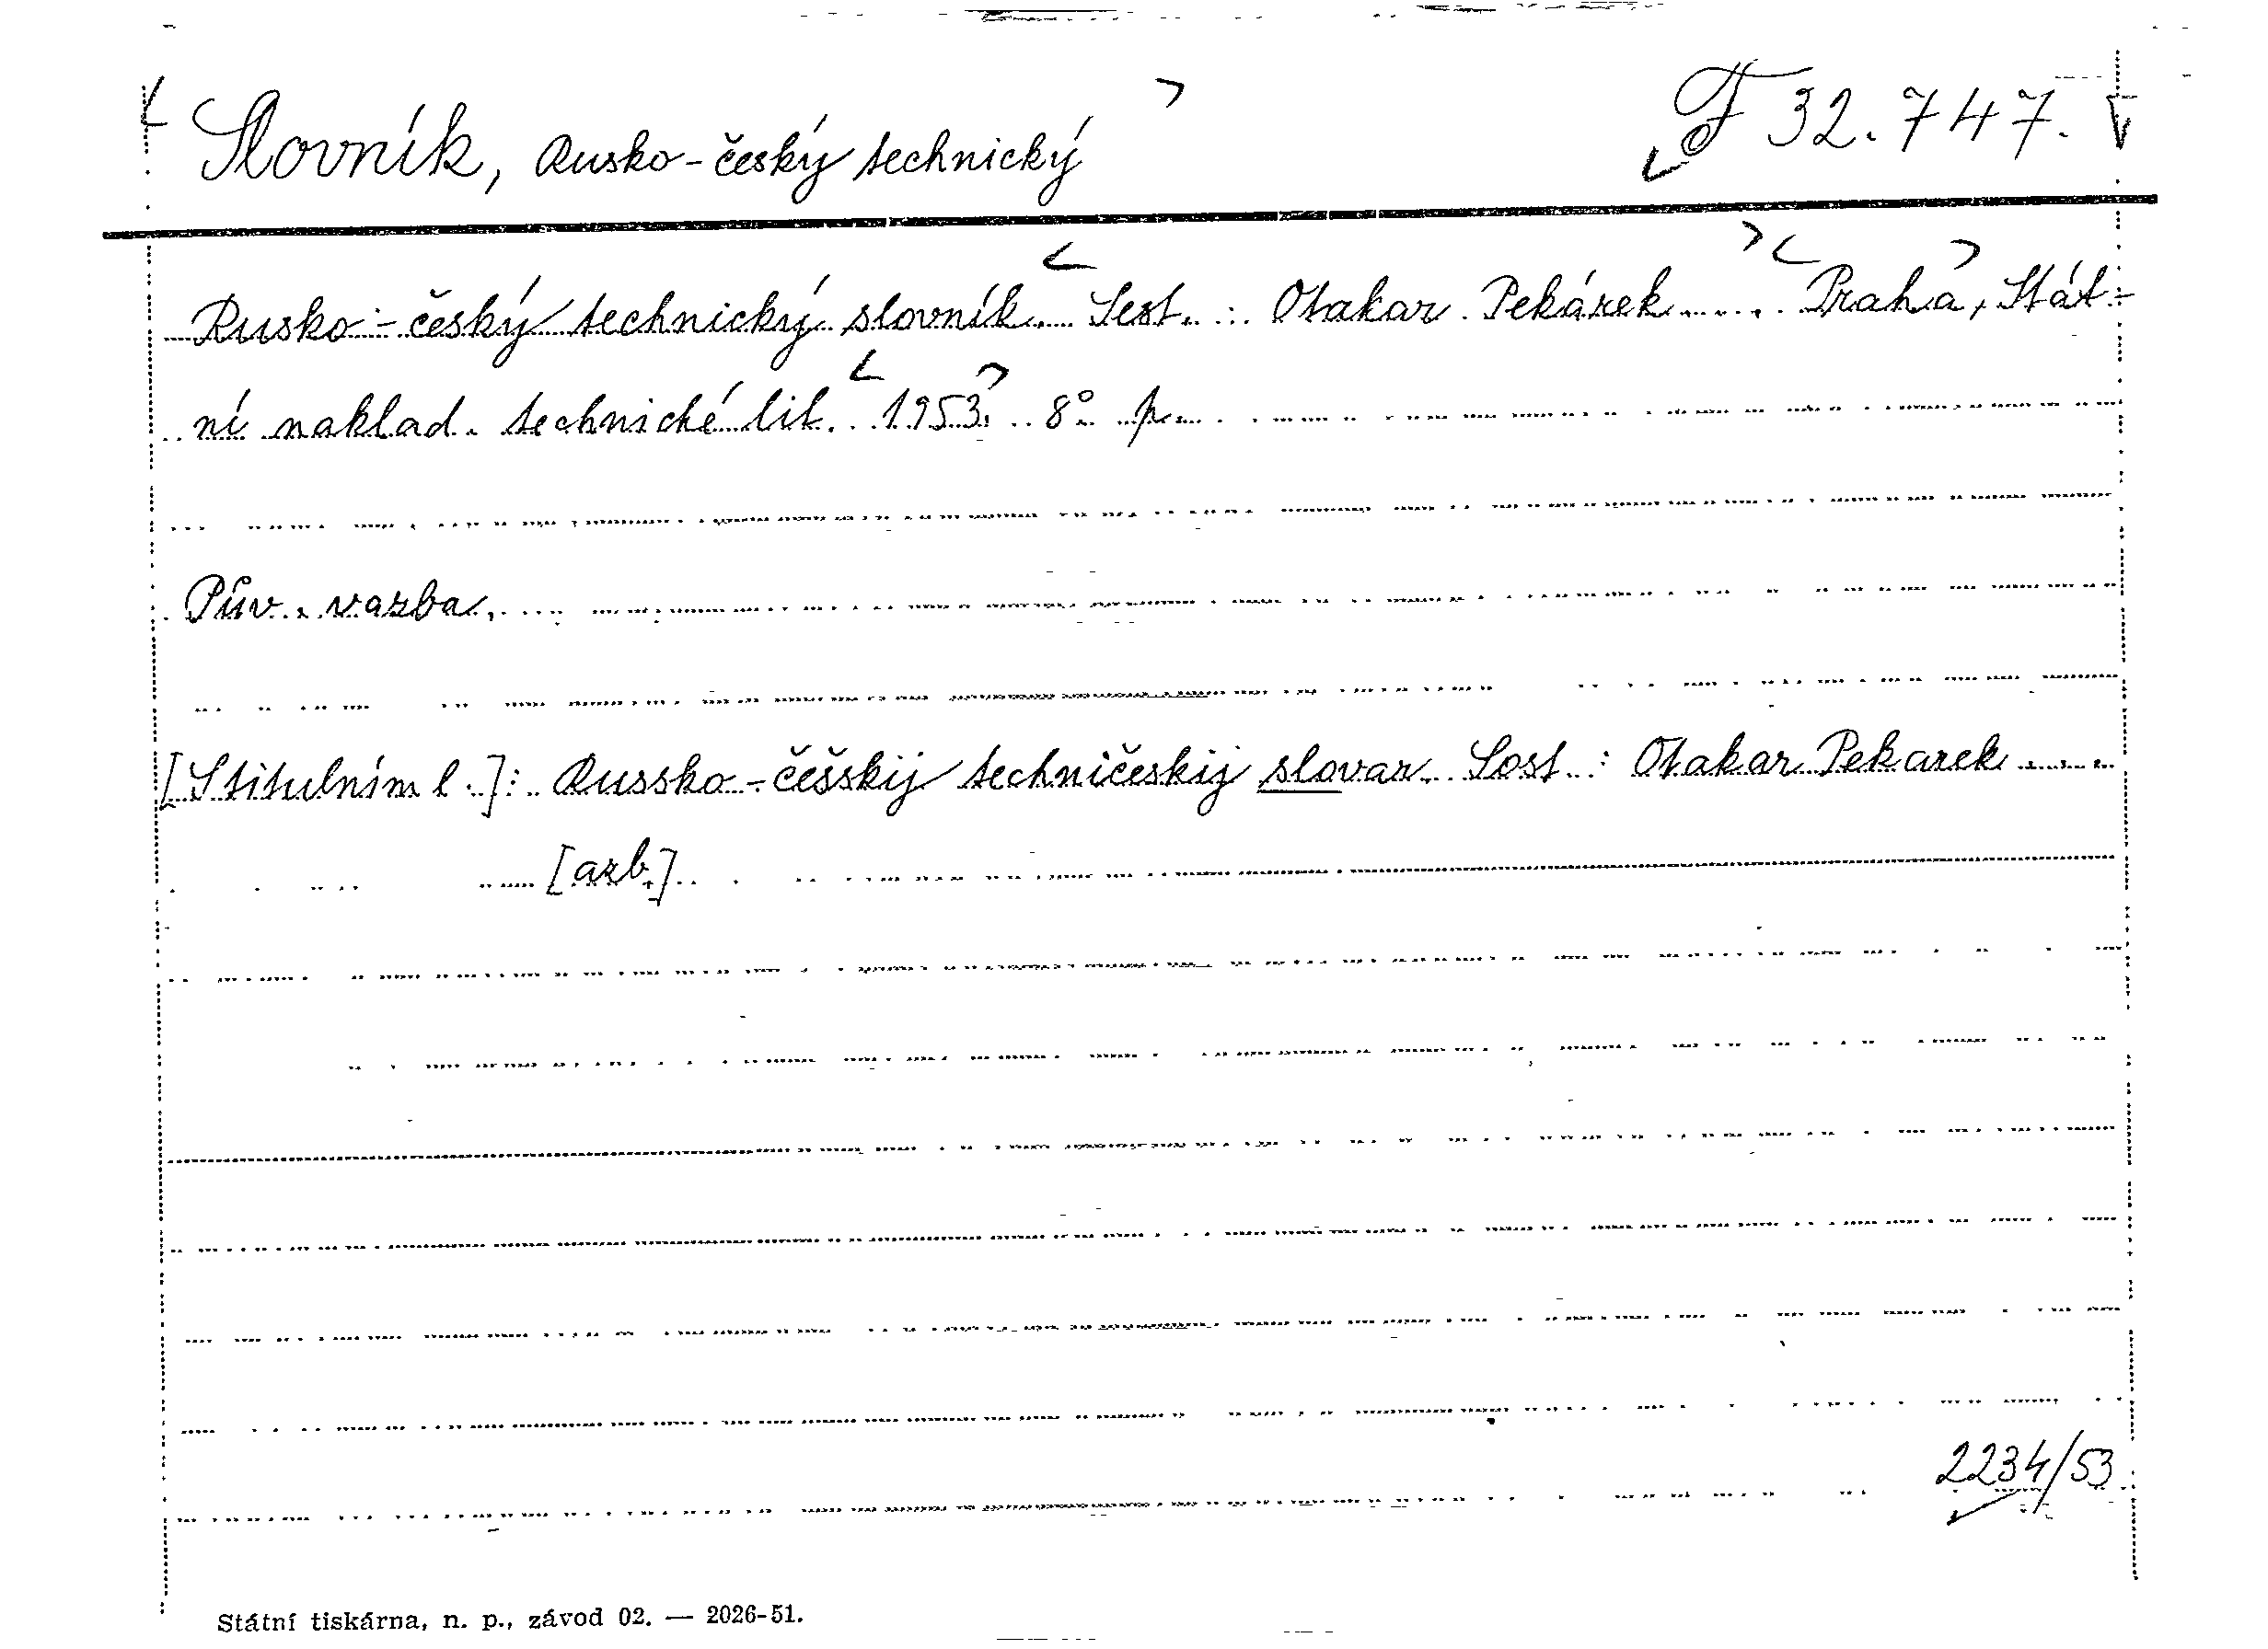 Slovník, Rusko-český technický
F 32.747.
Rusko-český technický slovník. Sest.: Otakar Pekárek.... Praha, Stát-
ní naklad. technické lit. 1953. 8° p.
Pův. vazba.
[S titulním l.]: Russko-češskij techničeskij slovar. Sost.: Otakar Pekarek....
[azb.]
2234/53
Státní tiskárna, n. p., závod 02. — 2026-51.